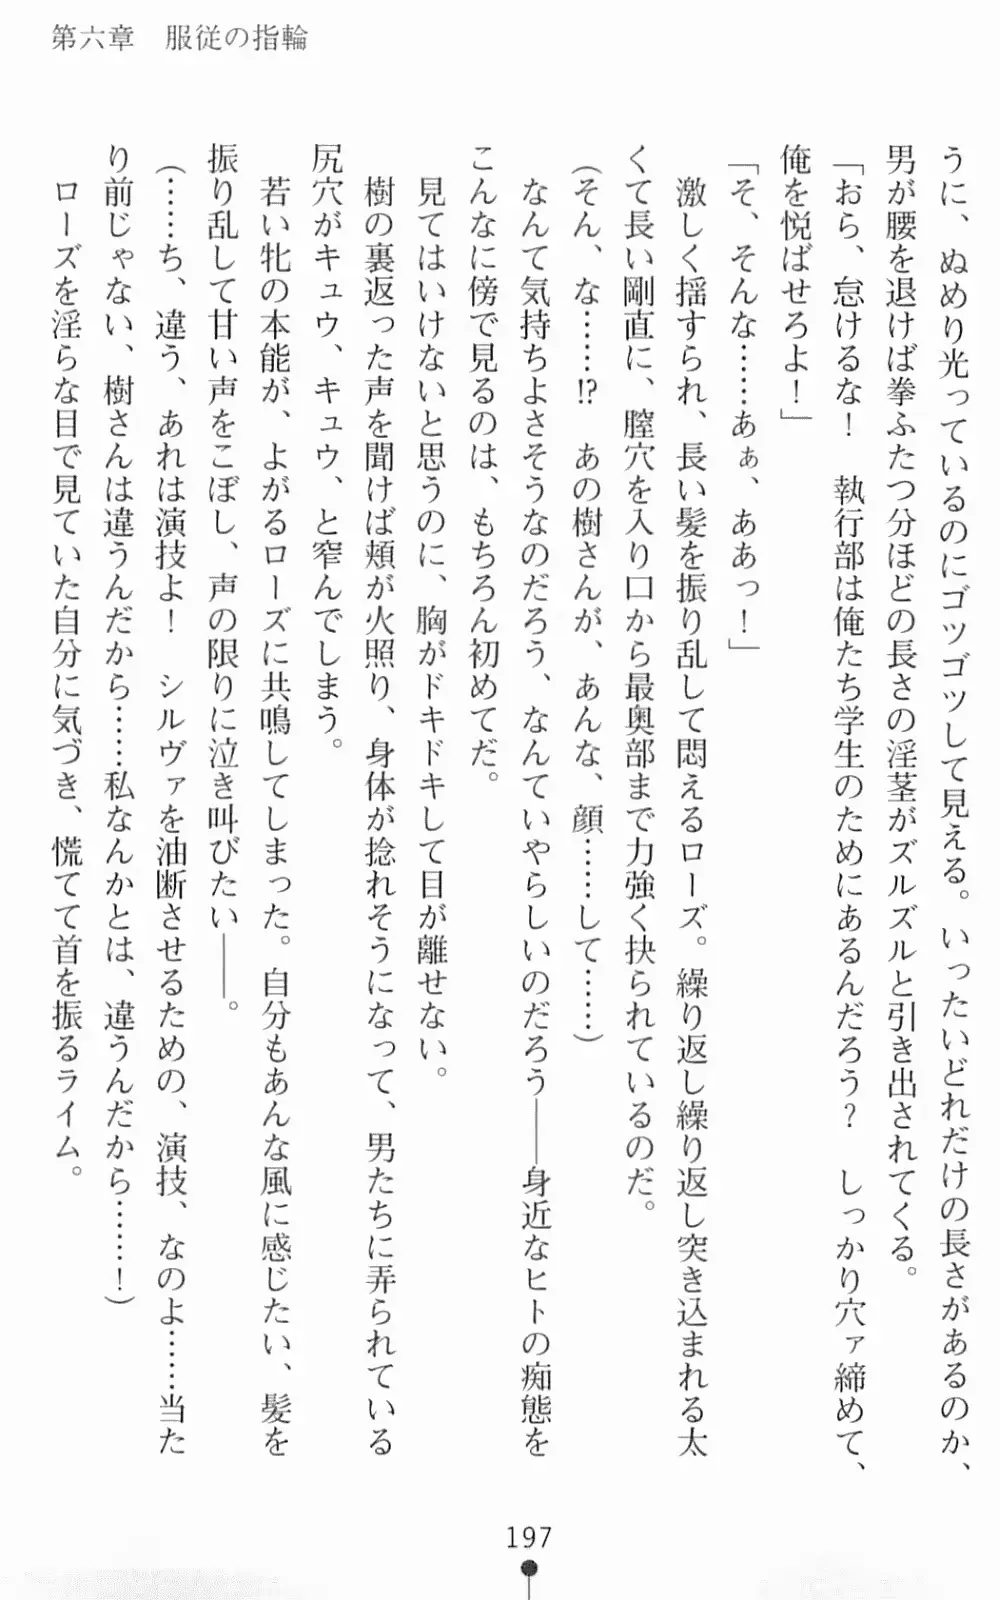 第六章　服従の指輪
うに、ぬめり光っているのにゴツゴツして見える。いったいどれだけの長さがあるのか、
男が腰を退けば拳ふたつ分ほどの長さの淫茎がズルズルと引き出されてくる。
「おら、怠けるな！　執行部は俺たち学生のためにあるんだろう？　しっかり穴ァ締めて、
俺を悦ばせろよ！」
「そ、そんな……あぁ、ああっ！」
　激しく揺すられ、長い髪を振り乱して悶えるローズ。繰り返し繰り返し突き込まれる太
くて長い剛直に、膣穴を入り口から最奥部まで力強く抉られているのだ。
（そん、な……⁉　あの樹さんが、あんな、顔……して……）
　なんて気持ちよさそうなのだろう、なんていやらしいのだろう――身近なヒトの痴態を
こんなに傍で見るのは、もちろん初めてだ。
　見てはいけないと思うのに、胸がドキドキして目が離せない。
　樹の裏返った声を聞けば頬が火照り、身体が捻れそうになって、男たちに弄られている
尻穴がキュウ、キュウ、と窄んでしまう。
　若い牝の本能が、よがるローズに共鳴してしまった。自分もあんな風に感じたい、髪を
振り乱して甘い声をこぼし、声の限りに泣き叫びたい――。
（……ち、違う、あれは演技よ！　シルヴァを油断させるための、演技、なのよ……当た
り前じゃない、樹さんは違うんだから……私なんかとは、違うんだから……！）
　ローズを淫らな目で見ていた自分に気づき、慌てて首を振るライム。
197